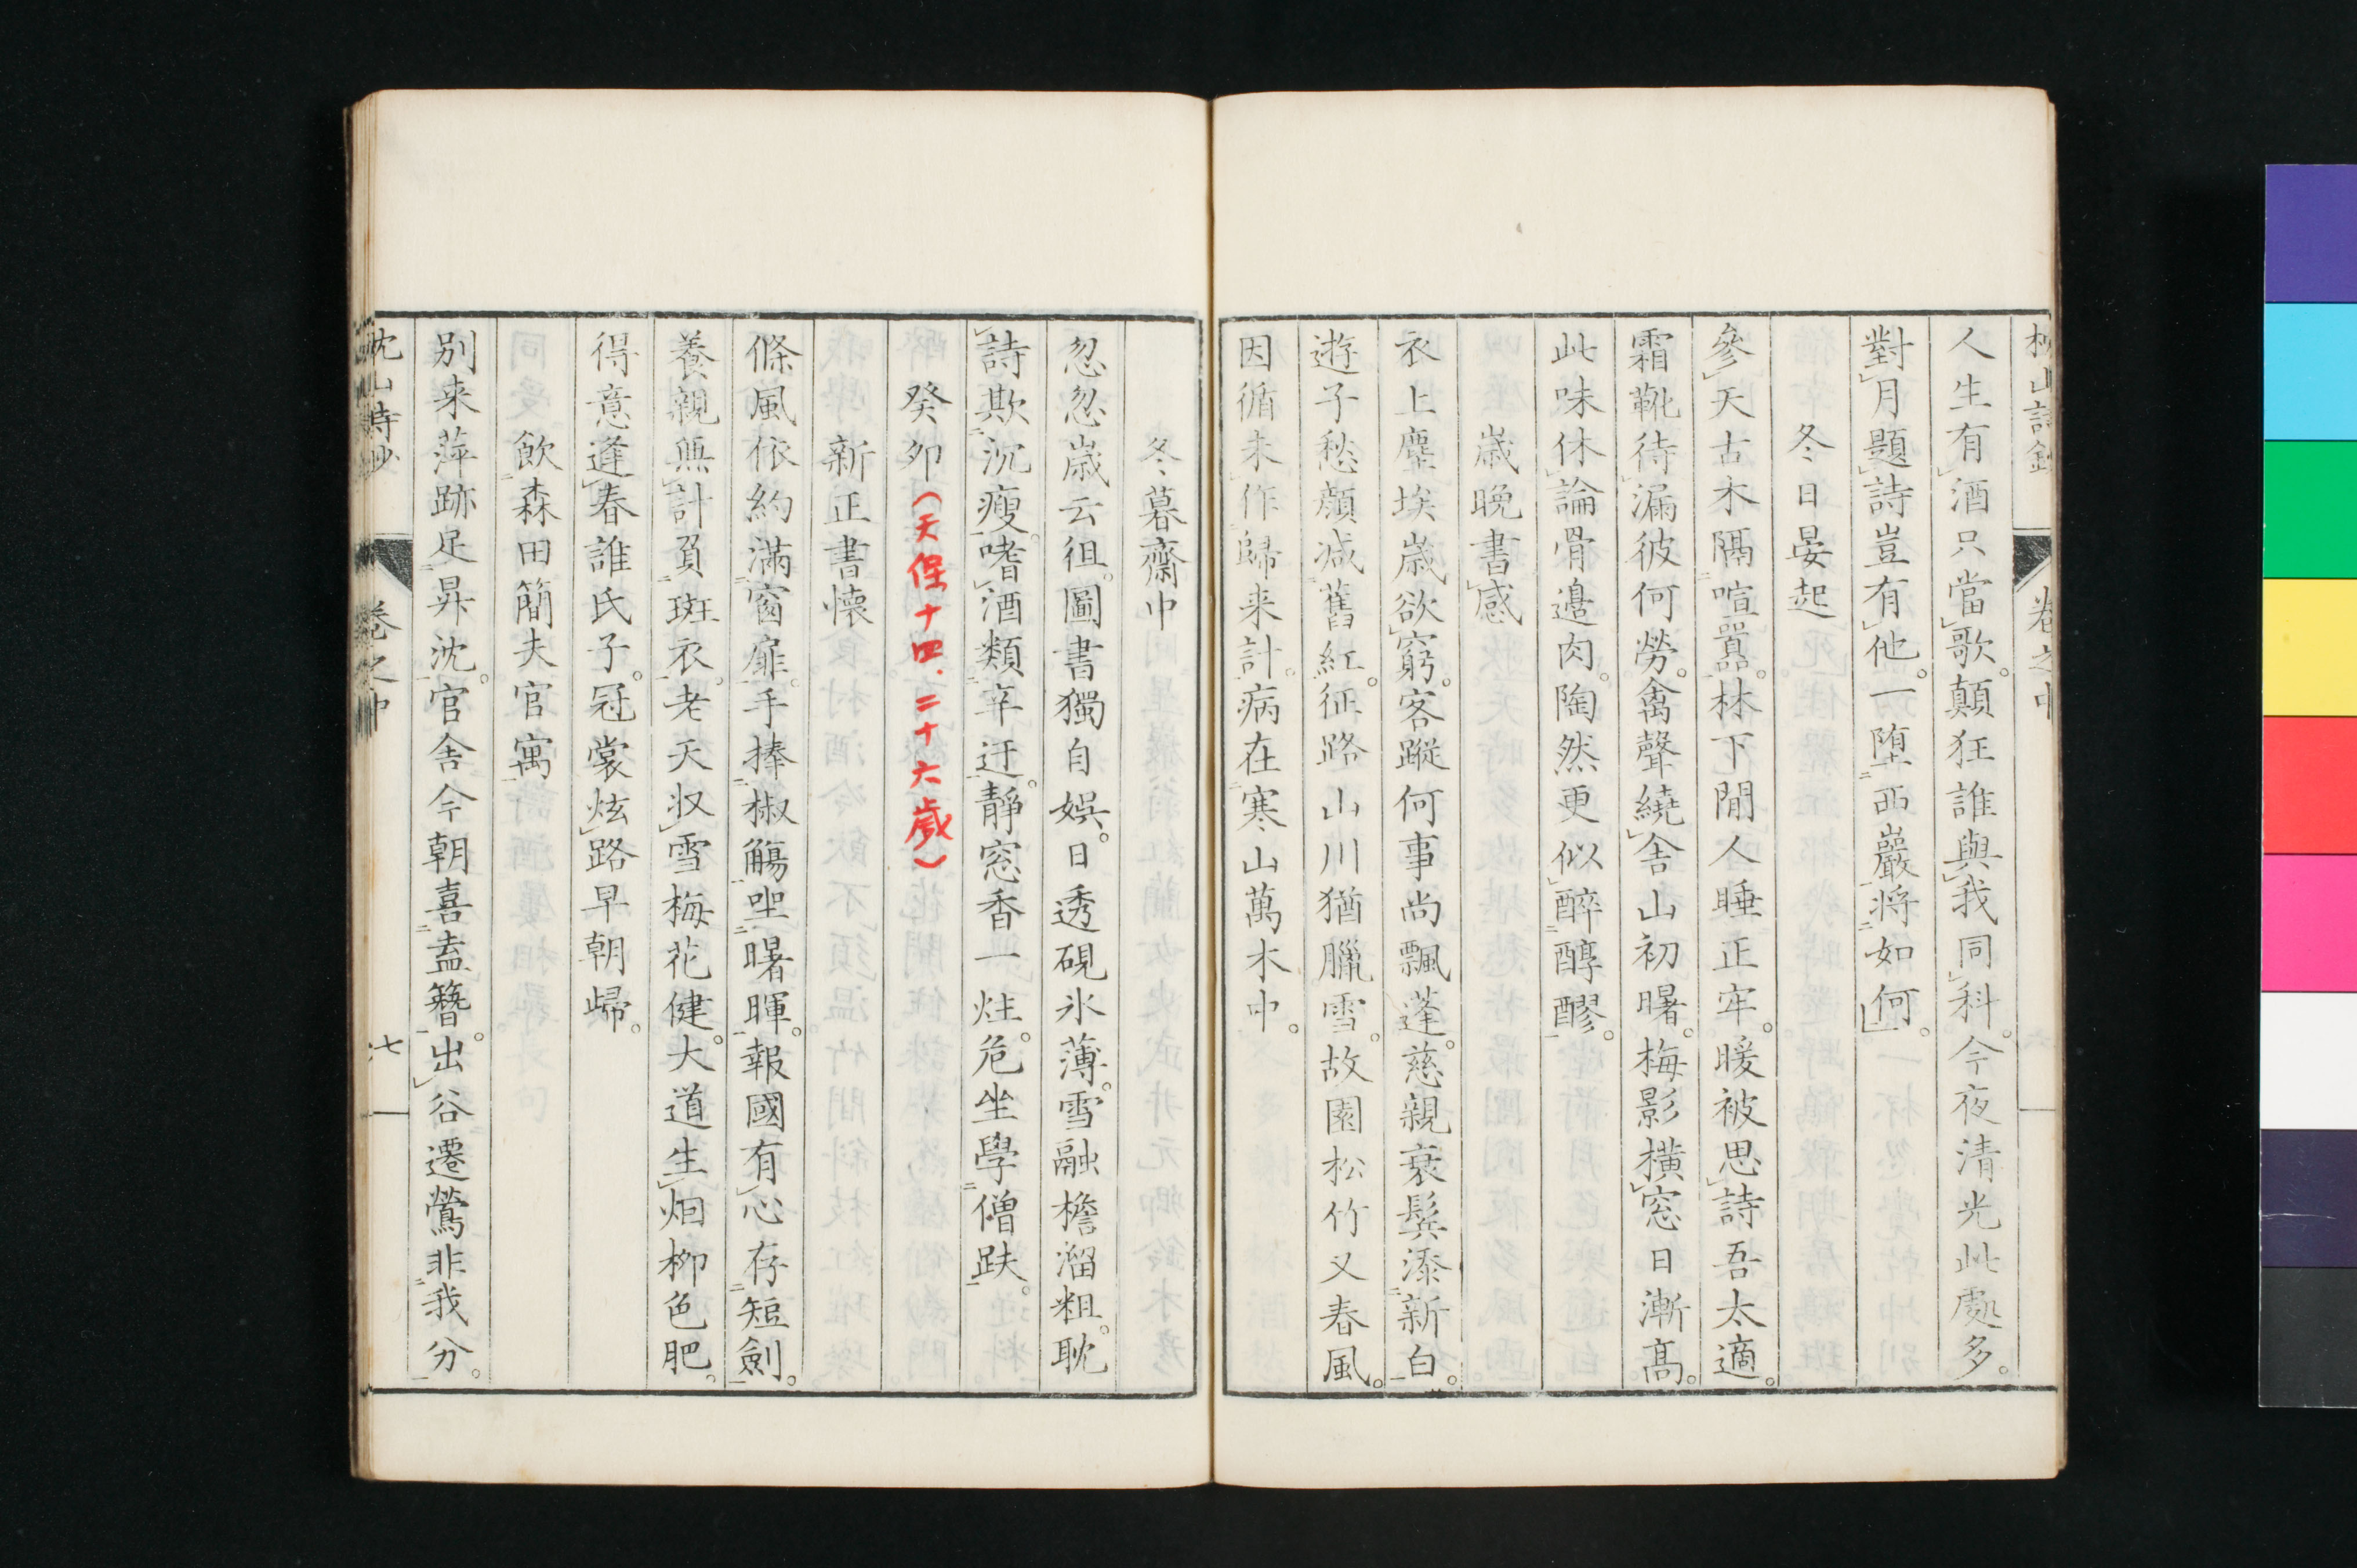 山詩鈔
卷之中
人生有酒只當歌。顛狂誰與我同科。今夜清光此處多。
對月題詩豈有他。一墮西巖將如何。
冬日晏起
參天古木隔喧囂。林下閒人睡正牢。暖被思詩吾太適。
霜靴待漏彼何勞。禽聲繞舍山初曙。梅影橫窓日漸髙。
此味休論骨邊肉。陶然更似醉醇醪。
歲晩書感
衣上塵埃歲欲窮。客蹤何事尚飄蓬。慈親衰鬂漆新白。
遊子愁顔减舊紅。征路山川猶臘雪。故園松竹又春風。
因循未作歸来計。病在寒山萬木中。
冬暮齋中
忽忽歲云徂。圖書獨自娯。日透硯氷薄。雪融檐溜粗。耽
詩欺沉瘦。嗜酒類辛迂。靜窓香一炷。危坐學僧趺。
癸卯(天保十四.二十六歳)
新正書懐
條風依約滿窗扉。手捧椒觴坐曙暉。報國有心存短劍。
養親無計負斑衣。老天収雪梅花健。大道生烟柳色肥。
得意逢春誰氏子。冠裳炫路早朝歸。
飲森田簡夫官寓
别来萍跡足昇沈。官舎今朝喜盍簪。出谷遷鶯非我分。
枕山詩鈔
卷之中
七